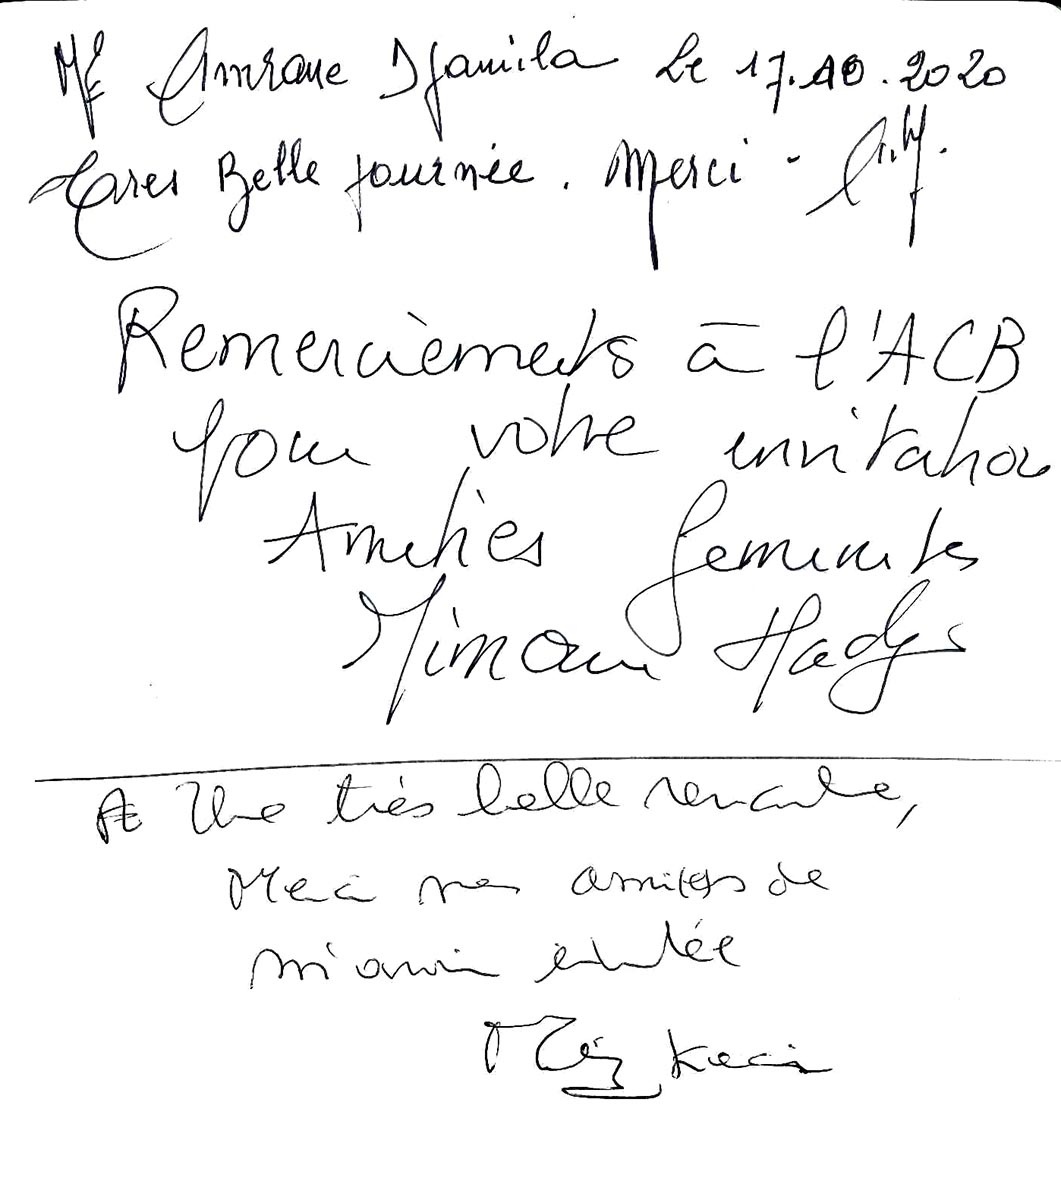 Me Amrane Djamila Le 17.10.2020
Très Belle journée. Merci - A.M.
Remerciements à l'ACB
pour votre invitation
Amitiés feministes
Mimouni Hadja
Une très belle rencontre,
Merci mes amies de
m'avoir invitée
Kaci